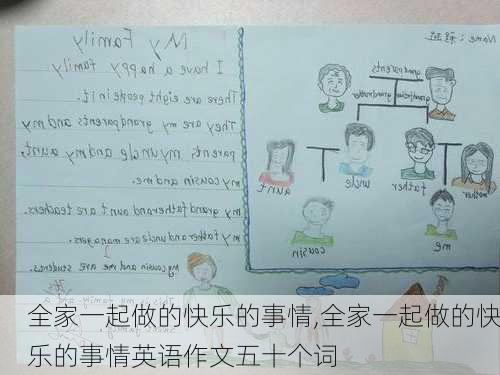 My Family
I have a happy family
There are eight people in it.
They are my grandparents and my
parents, my uncle and my aunt,
my cousin and me.
my grandfather and aunt are teachers.
my father and uncle are managers.
my cousin and me are students.
Name:
grandparents
grandmother
grandfather
aunt
uncle
father
mother
cousin
me
全家一起做的快乐的事情,全家一起做的快
乐的事情英语作文五十个词